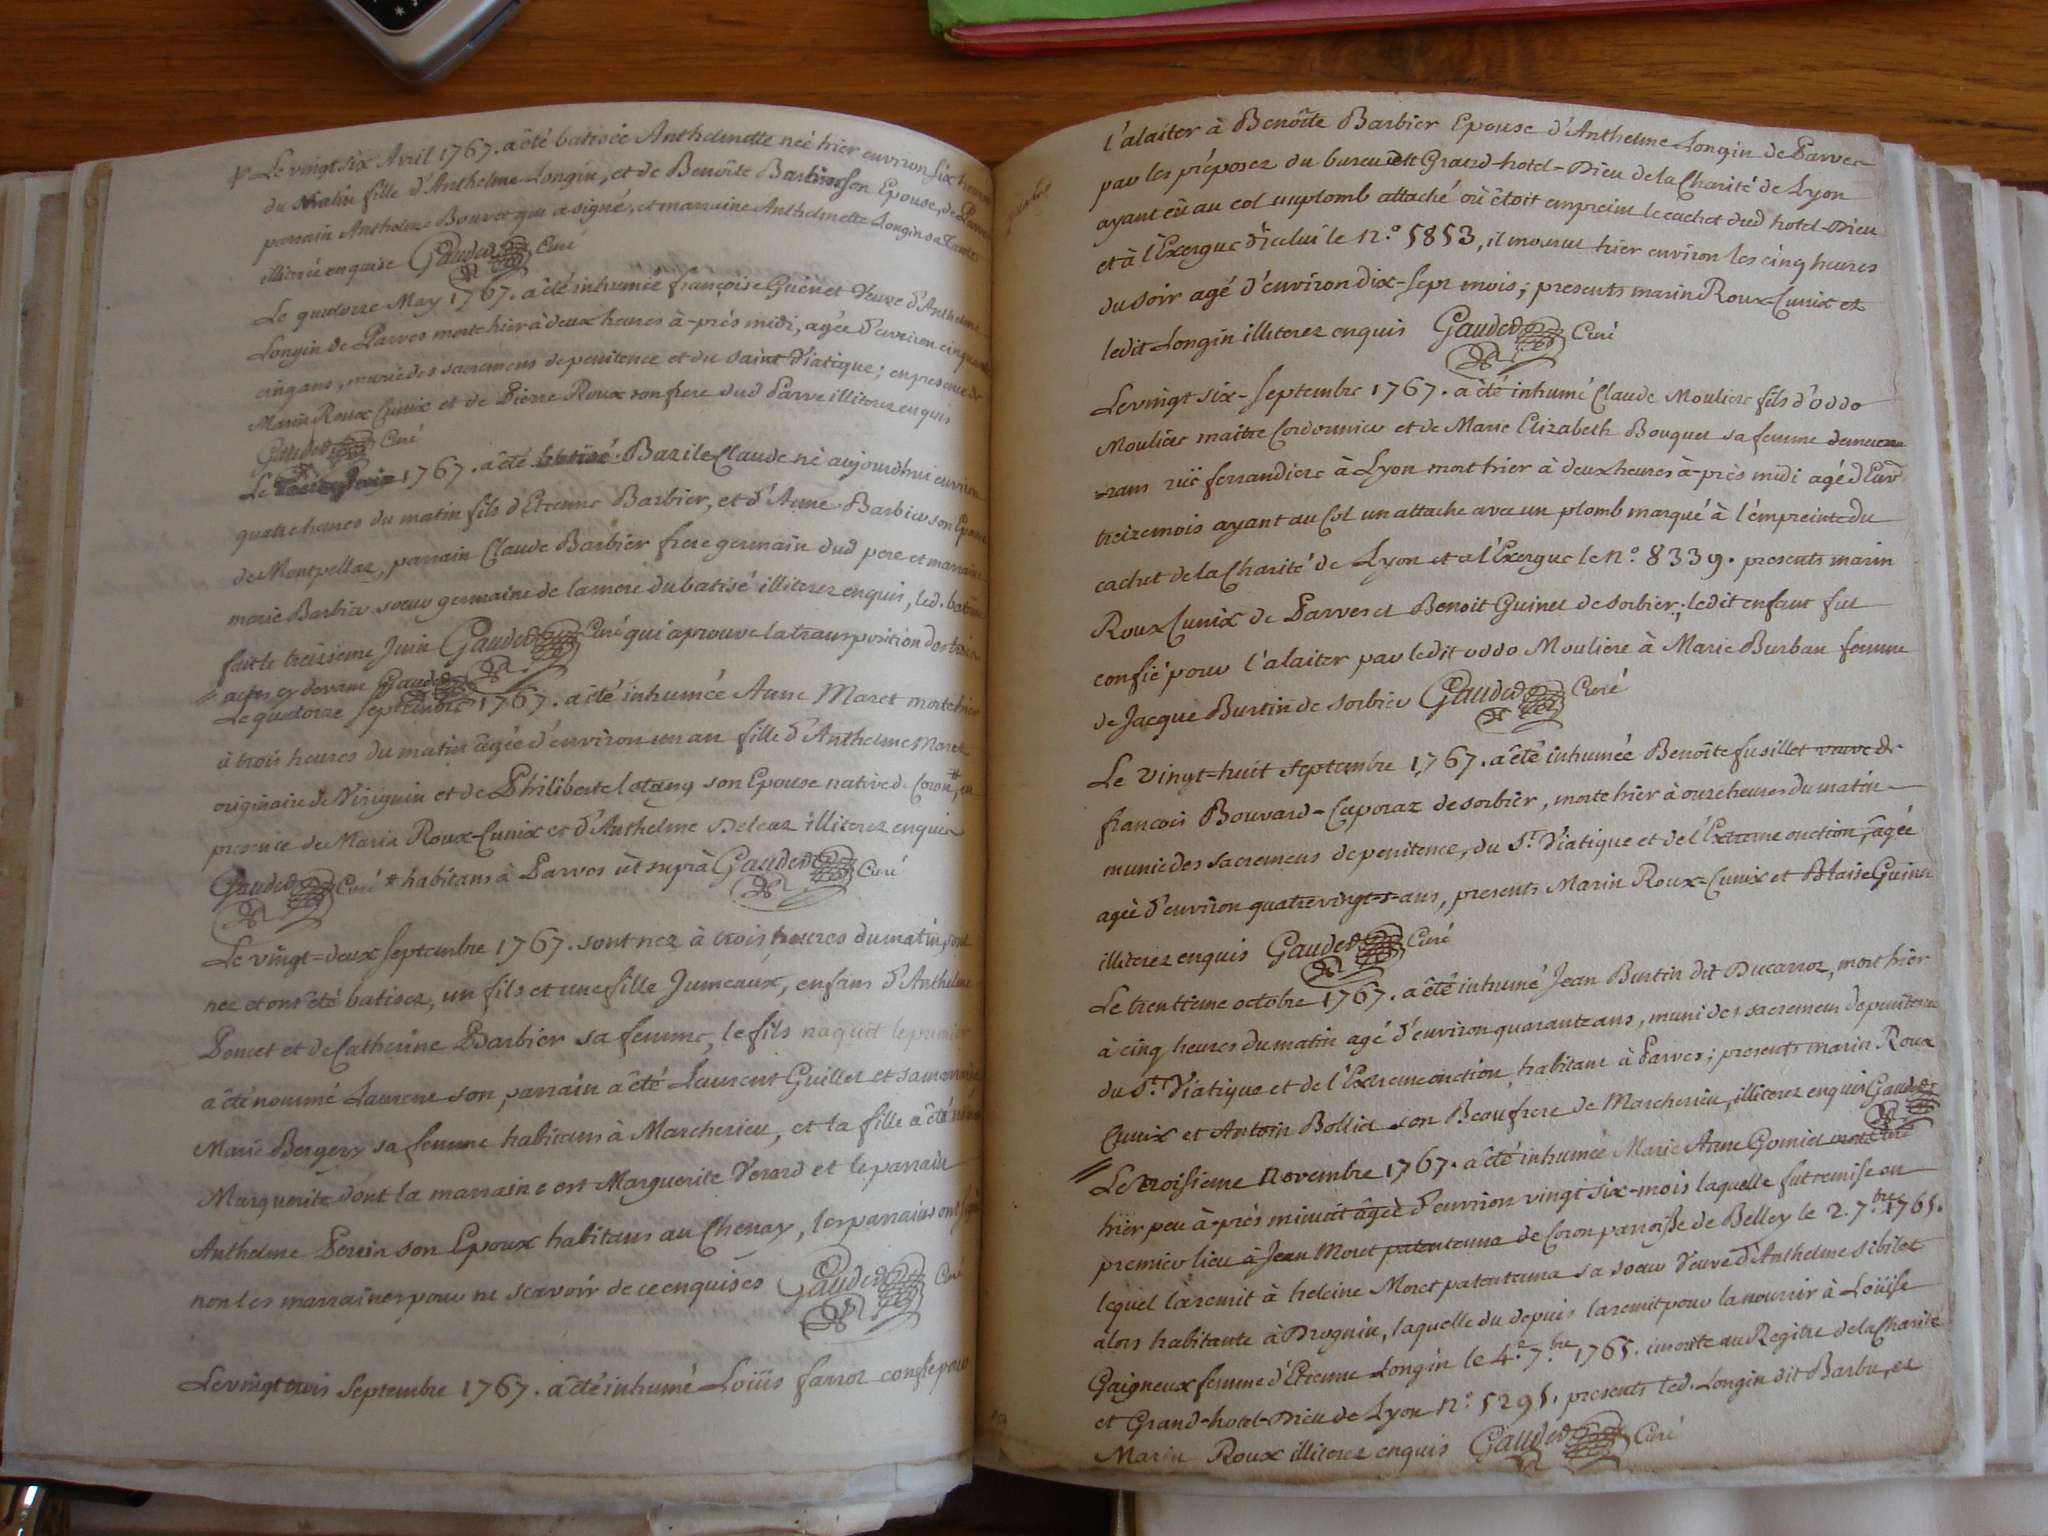 Le vingt six Avril 1767. a été batisée Anthelmette neé hier environ six heures
du Matin fille d'Anthelme Longin, et de Benoîte Barbier son Epouse, de Parves
parrain Anthelme Bouvet qui a signé, et marraine Anthelmette Longin sa Tante
illiterée enquise Gauded Curé
Le quatorze May 1767. a été inhumée françoise Guenet Veuve d'Anthelme
Longin de Parves morte hier à deux heures à-prés midi, agée d'environ cinquante
cinq ans, munie des sacremens de penitence et du saint Viatique; en presence de
Marin Roux Cunix et de Pierre Roux son frere dud Parve illiterez enquis
Gauded Curé
Le 1767. a été batisé Bazile Claude né aujourdhui environ
quatre heures du matin fils d'Etienne Barbier, et d'Anne Barbier son Epouse
de Montpellaz, parrain Claude Barbier frere germain dud pere et marraine
marie Barbier soeur germaine de la mere du batisé illiterez enquis, led. batême
fait le treizieme Juin Gauded Curé qui aprouve la transposition des trois
actes cy devant Gauded
Le quatorze septembre 1767. a été inhumée Anne Maret morte hier
à trois heures du matin âgée d'environ un an fille d'Anthelme Maret
originaire de Virignin et de Philiberte son Epouse native de Coron #, en
presence de Marin Roux-Cunix et d'Anthelme Deleaz illiterez enquis
Gauded Curé # habitans à Parves ut suprà Gauded Curé
Le vingt=deux septembre 1767. sont nez à trois heures du matin, sont
nez et ont été batisez, un fils et une fille Jumeaux, enfans d'Anthelme
Poncet et de Catherine Barbier sa femme, le fils naquit le premier
a été nommé Laurent son parrain a été Laurent Guillet et sa marraine
Marie Berger sa femme habitans à Marcherieu, et la fille a été nommée
Marguerite dont la marraine est Marguerite Verard et le parrain
Anthelme Perrin son Epoux habitans au Chenay, les parrains ont signé
non les marraines pour ne scavoir de ce enquises Gauded Curé
Le vingt trois septembre 1767. a été inhumé Loüis farroz confié pour
l'alaiter à Benoîte Barbier Epouse d'Anthelme Longin de Parves
par les préposez du bureu dtt Grand-hotel-Dieu de la Charité de Lyon
ayant eû au col un plomb attaché où étoit empreint le cachet dud hotel-Dieu
et à l'Exergue d'icelui le N.o 5853, il mourut hier environ les cinq heures
du soir agé d'environ dix-sept mois; presents marin Roux-Cunix et
ledit Longin illiterez enquis Gauded Curé
Le vingt six-septembre 1767. a été inhumé Claude Mouliere fils d'oddo
Mouliere maitre Cordonnier et de Marie Elizabeth Bouquet sa femme demeu
rans rüe ferrandiere à Lyon mort hier à deux heures à-près midi agé d'Env.
treize mois ayant au Col un attache avec un plomb marqué à l'empreinte du
cachet de la Charité de Lyon et a l'Exergue le N.o 8339. presents marin
Roux Cunix de Parves et Benoit Guinet de sorbier; ledit enfant fut
confié pour l'alaiter par ledit oddo Mouliere à Marie Burban femme
de Jacque Burtin de sorbier Gauded Curé
Le vingt=huit septembre 1767. a été inhumée Benoîte fusillet veuve de
francois Bouvard-Caporaz de sorbier, morte hier à onze heures du matin
munie des sacremens de penitence, du S.t Viatique et de l'Extreme onction, âgée
agée d'environ quatrevingt-s-ans, presents Marin Roux-Cunix et Blaise Guinet
illiterez enquis Gauded Curé
Le trentieme octobre 1767. a été inhumé Jean Burtin dit Ducarroz, mort hier
à cinq heures du matin agé d'environ quarante ans, muni des sacremens de penitence
du S.t Viatique et de l'Extreme onction, habitant à Parves; presents marin Roux
Cunix et Antoin Bollia son Beaufrere de Marcherieu, illiterez enquis Gauded
Curé
Le troisieme Novembre 1767. a été inhumée Marie Anne Goniet morte
hier peu à-prés minuit âgée d'environ vingt six-mois laquelle fut remise en
premier lieu à Jean Moret patentuna de Coron parroisse de Belley le 2. 7.bre 1765.
lequel la remit à heleine Moret patentuna sa soeur Veuve d'Anthelme sibilet
alors habitante à Drognin, laquelle du depuis la remit pour la nourrir à Loüise
Gaigneux femme d'Etienne Longin le 4.e 7.bre 1765. inscrite au Regitre de la Charité
et Grand-hotel-Dieu de Lyon N.o 5295. presents led. Longin dit Barbu, et
Marin Roux illiterez enquis Gauded Curé